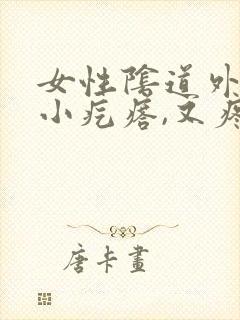 女性陰道外
小疙瘩,又疼
唐卡畫